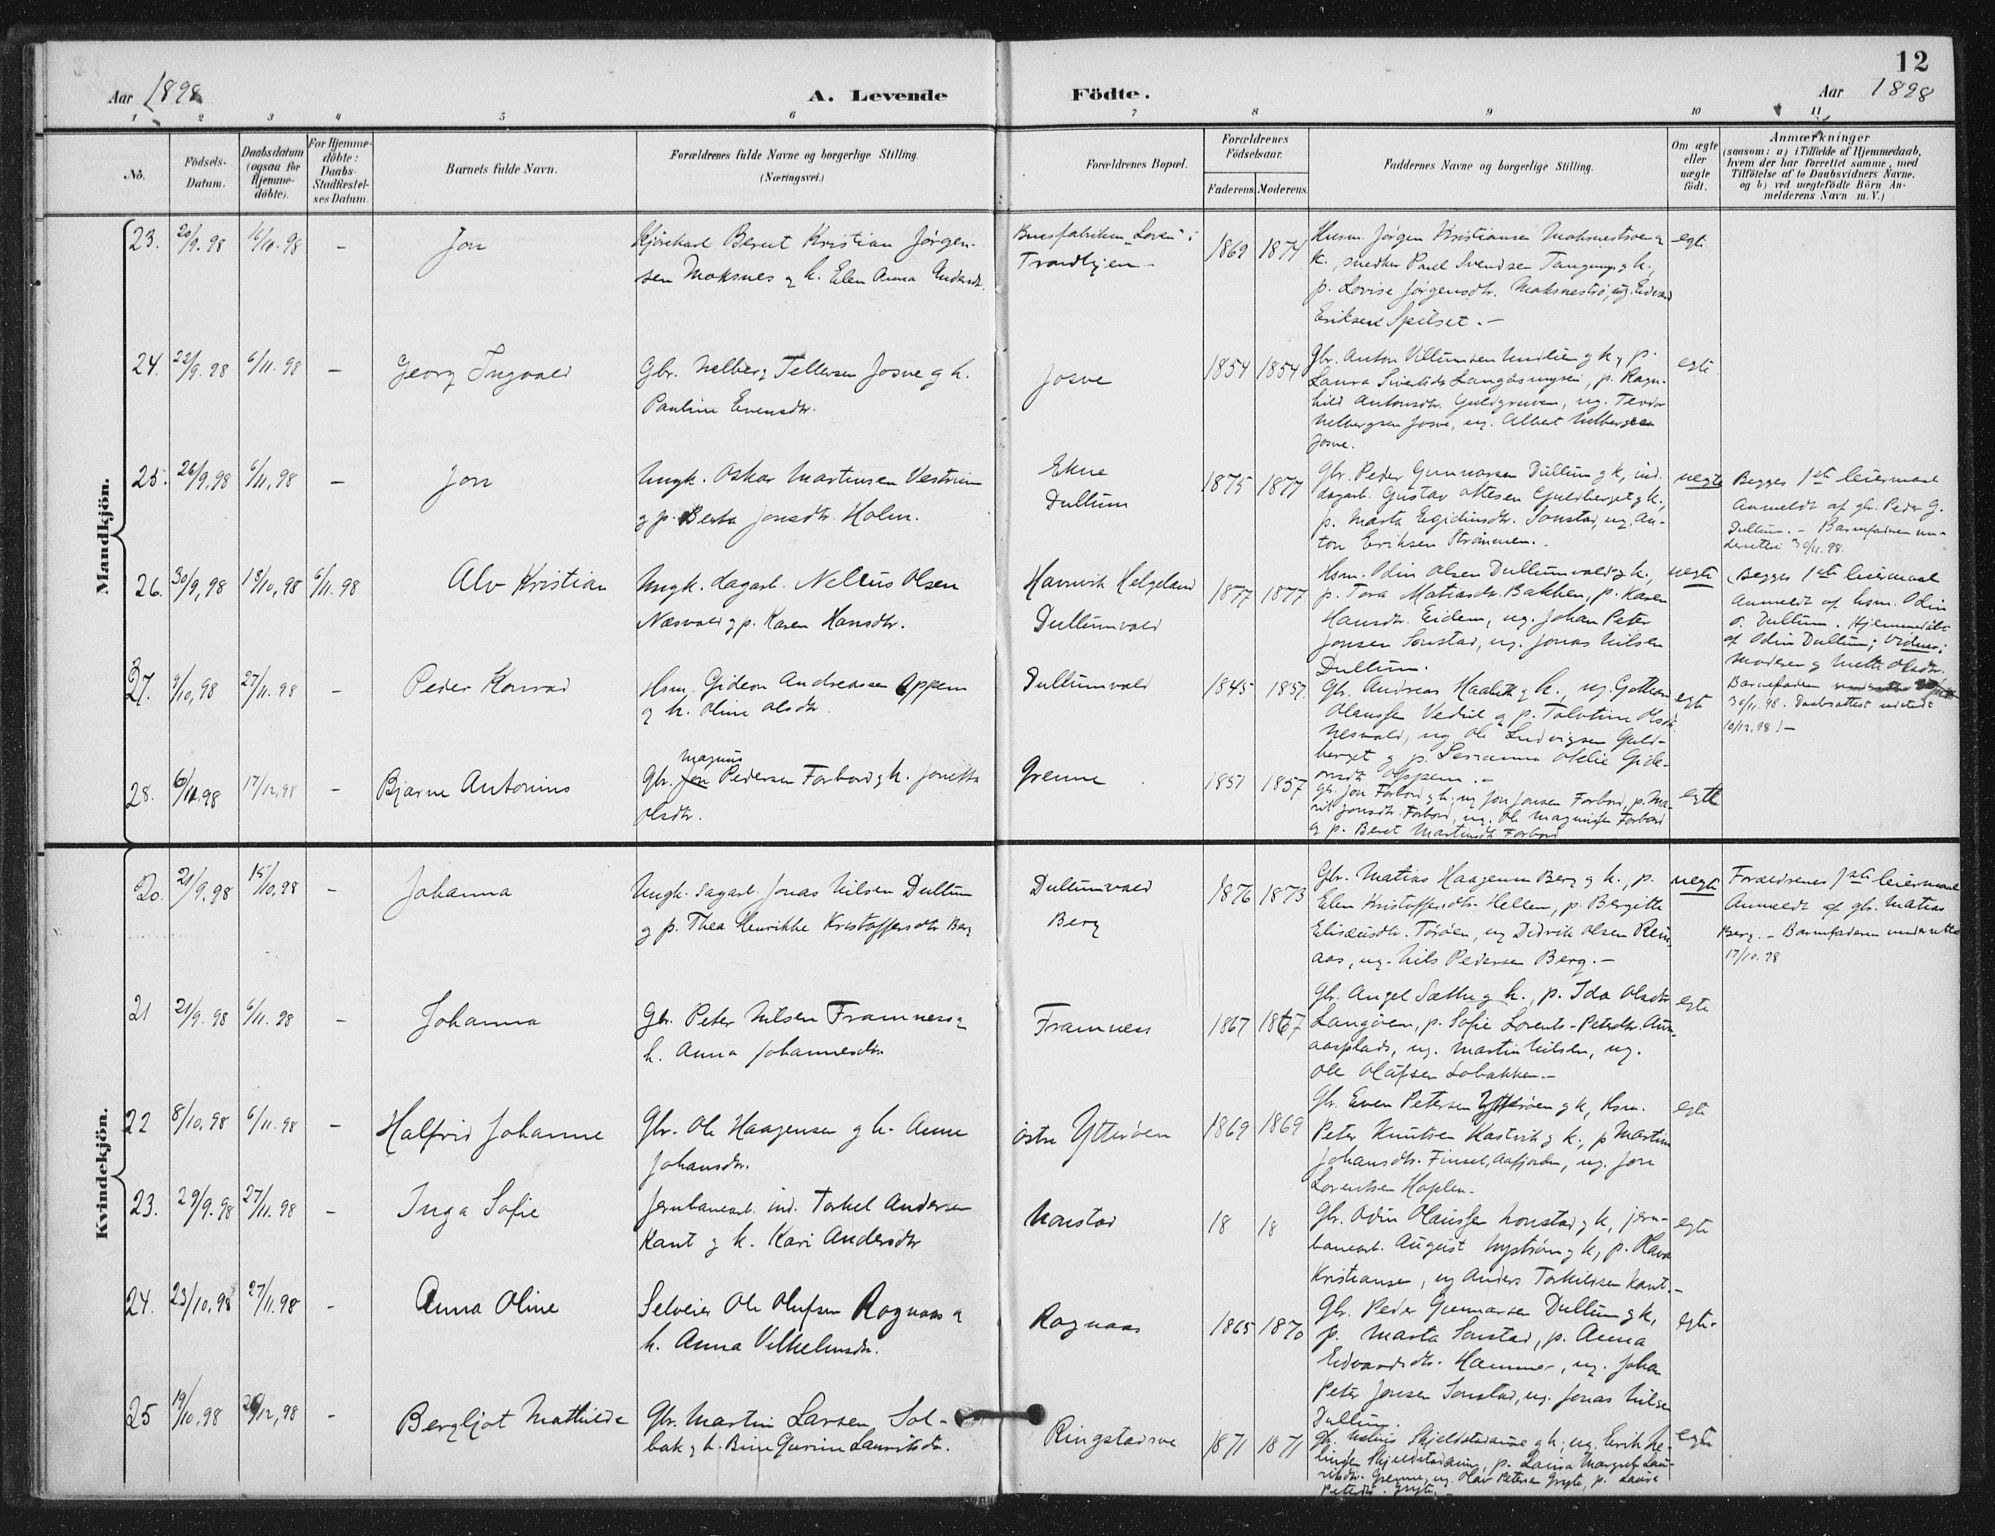 12
Aar 1898
A. Levende
Födte.
Aar 1898
1 2 3 4 5 6 7 8 9 10 11
No.
Födsels-
Datum.
Daabsdatum
(ogsaa for
Hjemme-
döbte).
For Hjemme-
döbte:
Daabs-
Stadfæstel-
ses Datum.
Barnets fulde Navn.
Forældrenes fulde Navne og borgerlige Stilling.
(Næringsvei.)
Forældrenes Bopæl.
Forældrenes
Födselsaar.
Faderens. Moderens.
Faddernes Navne og borgerlige Stilling.
Om ægte
eller
uægte
födt.
Anmærkninger
(saasom: a) i Tilfælde af Hjemmedaab,
hvem der har forrettet samme, med
Tilföielse af to Daabsvidners Navne.
og b) ved uægtefödte Börn An-
melderens Navn m. V.)
Mandkjön.
23. 20/9.98 – Jon
Kjörekarl Bernt Kristian Jørgen-
sen Moksnes & h. Elen Anna
Trondhjem
1869 1874
Husm. Jørgen Kristiansen
k., snedker Paul Svendsen
p. Lovise Jørgensdtr.
Eriksen Spilset. –
egte
24. 22/9.98 6/11.98 – Georg Ingvald
Gbr. Nelberg Tellersen Josve & h.
Pauline Evensdtr.
Josve
1854 1854
Laura Sivertsdtr. Langåsmyren, p. Ragn-
hild Antonsdtr. Guldgruven, ug. Teodor
Nelbergsen Josve, ug. Albert Nelbergsen
Josve.
egte
25. 26/9.98 6/11.98 – Jon
Ungk. Oskar Martinsen Vestrum
& p. Berta Jonsdtr. Holm.
Ekne
Dullum
1875 1877
Gbr. Peder Gunnarsen Dullum & k, ind.
dagarb. Gustav Ottesen Guldberget & k,
p. Marta Egidiusdtr. Sonstad, ug. An-
ton Eriksen Strömmen.
uegte
Begges 1ste leiermaal
Anmeldt af gbr. Peder G.
Dullum. – Barnefaderen un-
derrettet 30/11.98.
26. 30/9.98 18/10.98 6/11.98 Alv Kristian
Ungk. dagarb. Nelius Olsen
Næsvald & p. Karen Hansdtr.
Havnvik Helgeland
Dullumvald
1877 1877
Hsm. Odin Olsen Dullumvald & k.,
p. Tora Matiasdtr. Bakken, p. Karen
Hansdtr. Eidem, ug. Johan Peter
Jonsen Sonstad, ug. Jonas Nilsen
Dullum.
uegte
Begges 1ste leiermaal
Anmeldt af hsm. Odin
O. Dullum. Hjemmedöbt
af Odin Dullum; Vidner:
Moderen & Mette Olsdtr.
Barnefaderen
30/11.98. Daabsattest udstedt
10/12.98. –
27. 9/10.98 27/11.98 – Peder Konrad
Hsm. Gideon Andreassen Oppem
& h. Oline Olsdtr.
Dullumvald
1845 1857
Gbr. Andreas & k., ug.
& p.
Nesvald, ug. Ole Ludvigsen Guld-
berget & p. Otelie Gide-
onsdtr. Oppem. –
egte
28. 17/12.98 – Bjarne Antonius
Magnus
Gbr. Jon Pedersen Forbord & h. Jonetta
Olsdtr.
Grenne
1851 1857
Gbr. Jon Forbord & k, ug. Jon Jonsen Forbord, p. Ma-
rit Jonsdtr. Forbord, ug. Ole Magnussen Forbord
& p. Beret Martinsdtr. Forbord
egte
Kvindekjön.
20. 21/9.98 15/10.98 – Johanna
Ungk. dagarb. Jonas Nilsen Dullum
& p. Thea Henrikke Kristoffersdtr. Berg
Dullumvald
Berg
1876 1873
Gbr. Matias Haagensen Berg & k., p.
Elen Kristoffersdtr. Hellem, p. Bergitte
Eliseusdtr. Toröen, ug. Didrik Olsen Rein-
aas, ug. Nils Pedersen Berg. –
uegte
Forældrenes 1ste leiermaal
Anmeldt af gbr. Matias
Berg. – Barnefaderen underrettet
17/10.98
21 21/9.98 6/11.98 – Johanna
Gbr. Peter Nilsen Framness &
h. Anna Johannesdtr.
Framness
1867 1867
Gbr. Angel Sæther & k., p. Ida Olsdtr
Langöen, p. Sofie Lorents-Petersdtr.
aasplads, ug. Martin Nilsen, ug.
Ole Olafsen Lobakken. –
egte
22 8/10.98 6/11.98 – Halfrid Johanne
Gbr. Ole Haagensen & h. Anne
Johansdtr.
Östre Ytteröen
1869 1869
Gbr. Even Petersen Ytteröen & k, Hsm.
Peter Knutsen Hastvik & k., p. Martin
Johansdtr. Finsel, Aafjorden, ug. Jon
Lorentsen Hoplen.
egte
23. 29/9.98 27/11.98 – Inga Sofie
Jernbanearb. ind. Torkel Andersen
Kant & h. Kari Andersdtr
Nonstad
18 18
Gbr. Odin Olaussen Nonstad & k, jern-
banearb. August Nyström & k, p. Olava
Kristiansen, ug. Anders Torkelsen Kant. –
egte
24. 23/10.98 27/11.98 – Anna Oline
Selveier Ole Olufsen Rognaas &
h. Anna Vilhelmsdtr.
Rognaas
1865 1870
Gbr. Peder Gunnarsen Dullum & k,
p. Marta Sonstad, p. Anna
Edvardsdtr. Hammer, ug. Johan
Peter Jonsen Sonstad, ug. Jonas Nilsen
Dullum.
egte
25 19/10.98 – Bergljot Mathilde
Gbr. Martin Larsen Sol-
bak & h. Gurine Lauritsdtr.
Ringstadsve
1871 1871
ug. Olav Petersen Gryte, p. Laura
Petersdtr. Gryte. –
egte